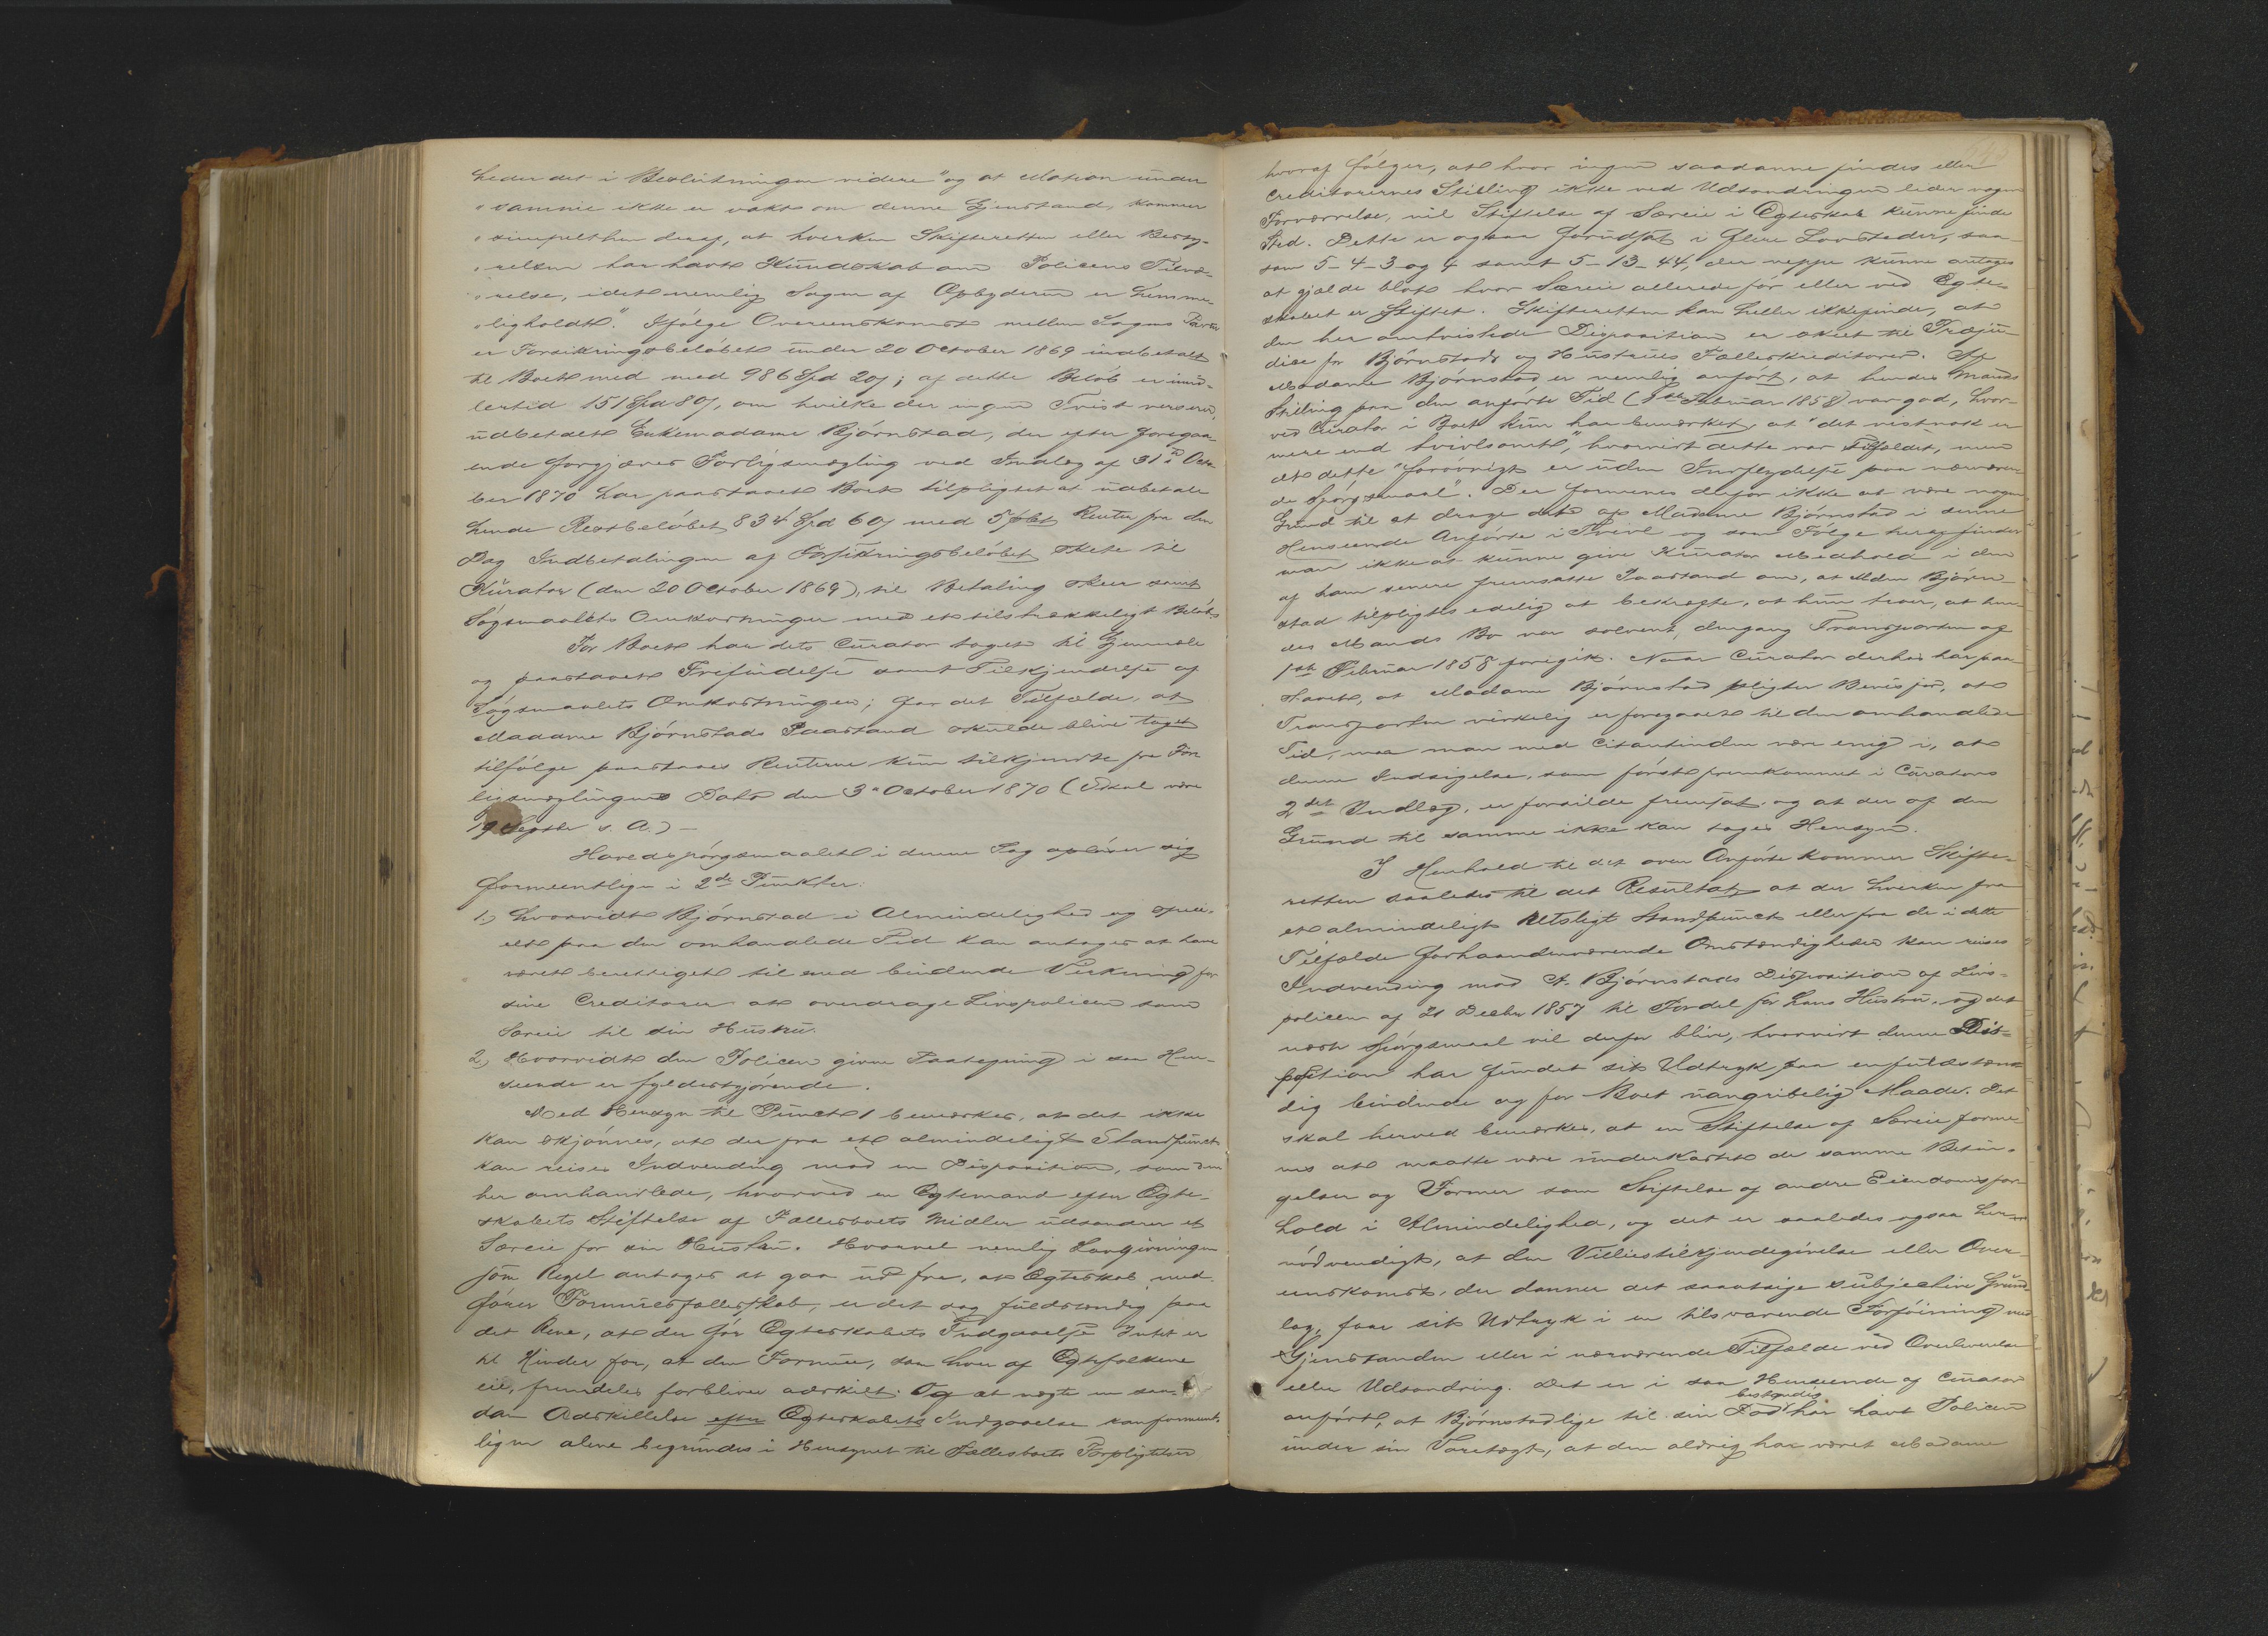 heder det i Beslutningen videre "og at Motion under
" samme ikke er vakt om denne Gjenstand, kommer
" simpelthen deraf, at hverken Skifteretten eller Besty-
" relsen har havt Kundskab om Policens Tilvæ-
" relse, idet nemlig Sagen af Opbyderen er hemme-
" ligholdt". Ifølge Overenskomst mellem Sagens Parter
er Forsikringsbeløbet under 20 October 1869 indbetalt
til Boet med med 986 Spd 20 ß; af dette Beløb er imid-
lertid 151 Spd 80 ß, om hvilke der ingen Tvist verserer,
udbetalt Enkemadame Bjørnstad, der efter foregaa-
ende forgjæves Forligsmægling ved Indlæg af 31te Octo-
ber 1870 har paastaaet Boet tilpligtet at udbetale
hende Restbeløbet 834 Spd 60 ß med 5 pCt Renter fra den
Dag Indbetalingen af Forsikringsbeløbet skete til
Kurator (den 20 October 1869), til Betaling skeer samt
Søgsmaalets Omkostninger med et tilstrækkeligt Beløb
For Boet har dets Curator taget til Gjenmæle
og paastaaet Frifindelse samt Tilkjendelse af
Søgsmaalets Omkostninger; for det Tilfælde, at
Madame Bjørnstads Paastand skulde blive taget
tilfølge paastaaes Renterne kun tilkjendte fra For
ligsmæglingens Dato den 3 October 1870 (Skal være
19 Septbr s. A.) –
Hovedspørgsmaalet i denne Sag opløser sig
formeentligen i 2de Punkter:
1.) hvorvidt Bjørnstad i Almindelighed og speci-
elt paa den omhandlede Tid kan antages at have
været berettiget til med bindende Virkning for
sine Creditorer at overdrage Livspolicen som
Særeie til sin Hustru.
2) Hvorvidt den Policen givne Paategning i saa Hen-
seende er fyldestgjørende.
Med Hensyn til Punct 1 bemærkes, at det ikke
kan skjønnes, at der fra et almindeligt Standpunct
kan reises Indvending mod en Disposition, som den
her omhandlede, hvorved en Egtemand efter Egte-
skabets Stiftelse af Fællesboets Midler udsondrer et
Særeie for sin Hustru. Hvorvel nemlig Lovgivningen
som Regel antages at gaa ud fra, at Egteskab med-
fører Formuesfællesskab, er det dog fuldstændig paa
det Rene, at der før Egteskabets Indgaaelse Intet er
til Hinder for, at den Formue, som hver af Egtefolkene
eie, fremdeles forbliver adskilt. Og at nægte en saa-
dan Adskillelse efter Egteskabets Indgaaelse kan forment-
ligen alene begrundes i Hensynet til Fællesboets Forpligtelser
hvoraf følger, at hvor ingen saadanne findes eller
Creditorernes Stilling ikke ved Udsondringen lider nogen
Forværrelse, vil Stiftelse af Særeie i Egteskab kunne finde
Sted. Dette er ogsaa forudsat i flere Lovsteder, saa-
som 5-4-3 og 4 samt 5-13-44, der neppe kunne antages
at gjælde blot hvor Særeie allerede før eller ved Egte-
skabet er stiftet. Skifteretten kan heller ikke finde, at
den her omtvistede Disposition er skeet til Præju-
dice for Bjørnstads og Hustrues Fælleskreditorer. Af
Madame Bjørnstad er nemlig anført, at hendes Mands
Stilling paa den anførte Tid (1ste Februar 1858) var god, hvor-
ved Curator i Boet kun har bemærket, at "det vistnok er
mere end tvivlsomt", hvorvidt dette var Tilfældet, men
at dette "forøvrigt er uden Indflydelse paa nærværen-
de Spørgsmaal". Der formenes derfor ikke at være nogen
Grund til at drage det af Madame Bjørnstad i denne
Henseende Anførte i Tvivl og som Følge heraf finder
man ikke at kunne give Kurator Medhold i den
af ham senere fremsatte Paastand om, at Mdm Bjørn-
stad tilpligtes edelig at bekræfte, at hun troer, at hen-
des Mands Bo var solvent, dengang Transporten af
1ste Februar 1858 foregik. Naar Curator derhos har paa-
staaet, at Madame Bjørnstad pligter Bevis for, at
Transporten virkelig er foregaaet til den omhandlede
Tid, maa man med Citantinden være enig i, at
denne Indsigelse, som først er fremkommet i Curators
2det Indlæg, er forsilde fremsat og at der af den
Grund til samme ikke kan tages Hensyn.
I Henhold til det oven Anførte kommer Skifte-
retten saaledes til det Resultat, at der hverken fra
et almindeligt retsligt Standpunct eller fra de i dette
Tilfælde forhaandenværende Omstændigheder kan reises
Indvending mod A. Bjørnstads Disposition af Livs-
policen af 21 Decbr 1857 til Fordel for hans Hustru, og det
næste Spørgsmaal vil derfor blive, hvorvidt denne Dis-
position har fundet sit Udtryk paa en fuldstæn-
dig bindende og for Boet uangribelig Maade. Det
skal herved bemærkes, at en Stiftelse af Særeie forme-
nes at maatte være underkastet de samme Betin-
gelser og Former som Stiftelse af andre Eiendomsfor-
hold i Almindelighed, og det er saaledes ogsaa her
nødvendigt, at den Villiestilkjendegivelse eller Over-
enskomst, der danner det saa at sige subjective Grund-
lag, faar sit Udtryk i en tilsvarende Forføining med
Gjenstanden eller i nærværende Tilfælde ved Overleverelse
eller Udsondring. Det er i saa Henseende af Curator
anført, at Bjørnstad lige til sin Død bestandig har havt Policen
under sin Varetægt, at den aldrig har været Madame